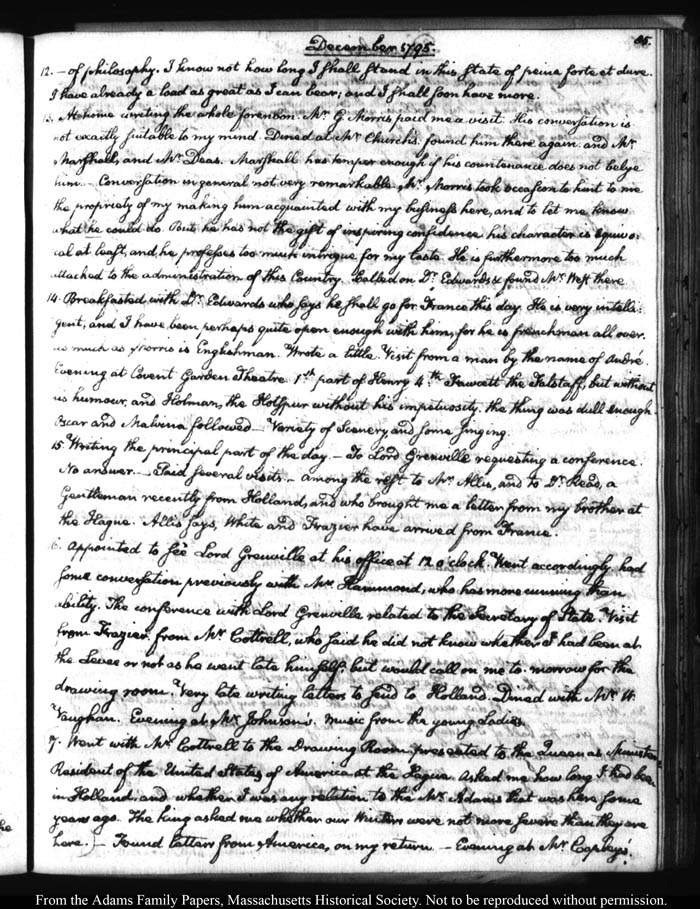 December 1795.
85.
12. — of philosophy. I know not how long I shall stand in this state of peine forte et dure.
I have already a load as great as I can bear; and I shall soon have more.
13. At home writing the whole forenoon. Mr. G. Morris paid me a visit. His conversation is
not exactly suitable to my mind. Dined at Mr. Church's. found him there again. and Mr.
Marshall, and Mr. Deas. Marshall has temper enough if his countenance does not belye
him. — Conversation in general not very remarkable. Mr. Morris took occasion to hint to me
the propriety of my making him acquainted with my business here, and to let me know
what he could do. But he has not the gift of inspiring confidence. his character is equivo-
cal at least, and he professes too much intrigue for my taste. He is furthermore too much
attached to the administration of this Country. Called on Dr. Edwards & found Mr. West there
14. Breakfasted with Dr. Edwards who says he shall go for France this day. He is very intelli-
gent, and I have been perhaps quite open enough with him, for he is frenchman all over.
as much as Morris is Englishman. Wrote a little. Visit from a man by the name of André
Evening at Covent Garden Theatre 1st part of Henry 4th. Fawcett the Falstaff, but without
his humour, and Holman, the Hotspur without his impetuosity. the thing was dull enough.
Oscar and Malvina followed — Variety of Scenery, and some singing.
15. Writing the principal part of the day. — To Lord Grenville requesting a conference.
No answer. — Paid several visits. — among the rest to Mr. Allis, and to Dr. Read, a
Gentleman recently from Holland, and who brought me a letter from my brother at
the Hague. Allis says, White and Frazier have arrived from France.
6. Appointed to see Lord Grenville at his office at 12 o'clock. Went accordingly, had
some conversation previously with Mr. Hammond, who has more cunning than
ability. The conference with Lord Grenville related to the Secretary of State. Visit
from Frazier. from Mr. Cottrell, who said he did not know whether I had been at
the Levee or not as he went late himself, but would call on me to-morrow for the
drawing room. Very late writing letters to send to Holland. Dined with Mr. W.
Vaughan. Evening at Mr. Johnson's. Music from the young Ladies.
7. Went with Mr. Cottrell to the Drawing Room. presented to the Queen as Minister
Resident of the United States of America at the Hague. Asked me how long I had been
in Holland, and whether I was any relation to the Mr. Adams that was here some
years ago. The king asked me whether our Winters were not more severe than they are
here. — Found letters from America, on my return — Evening at Mr. Copley's.
he
From the Adams Family Papers, Massachusetts Historical Society. Not to be reproduced without permission.